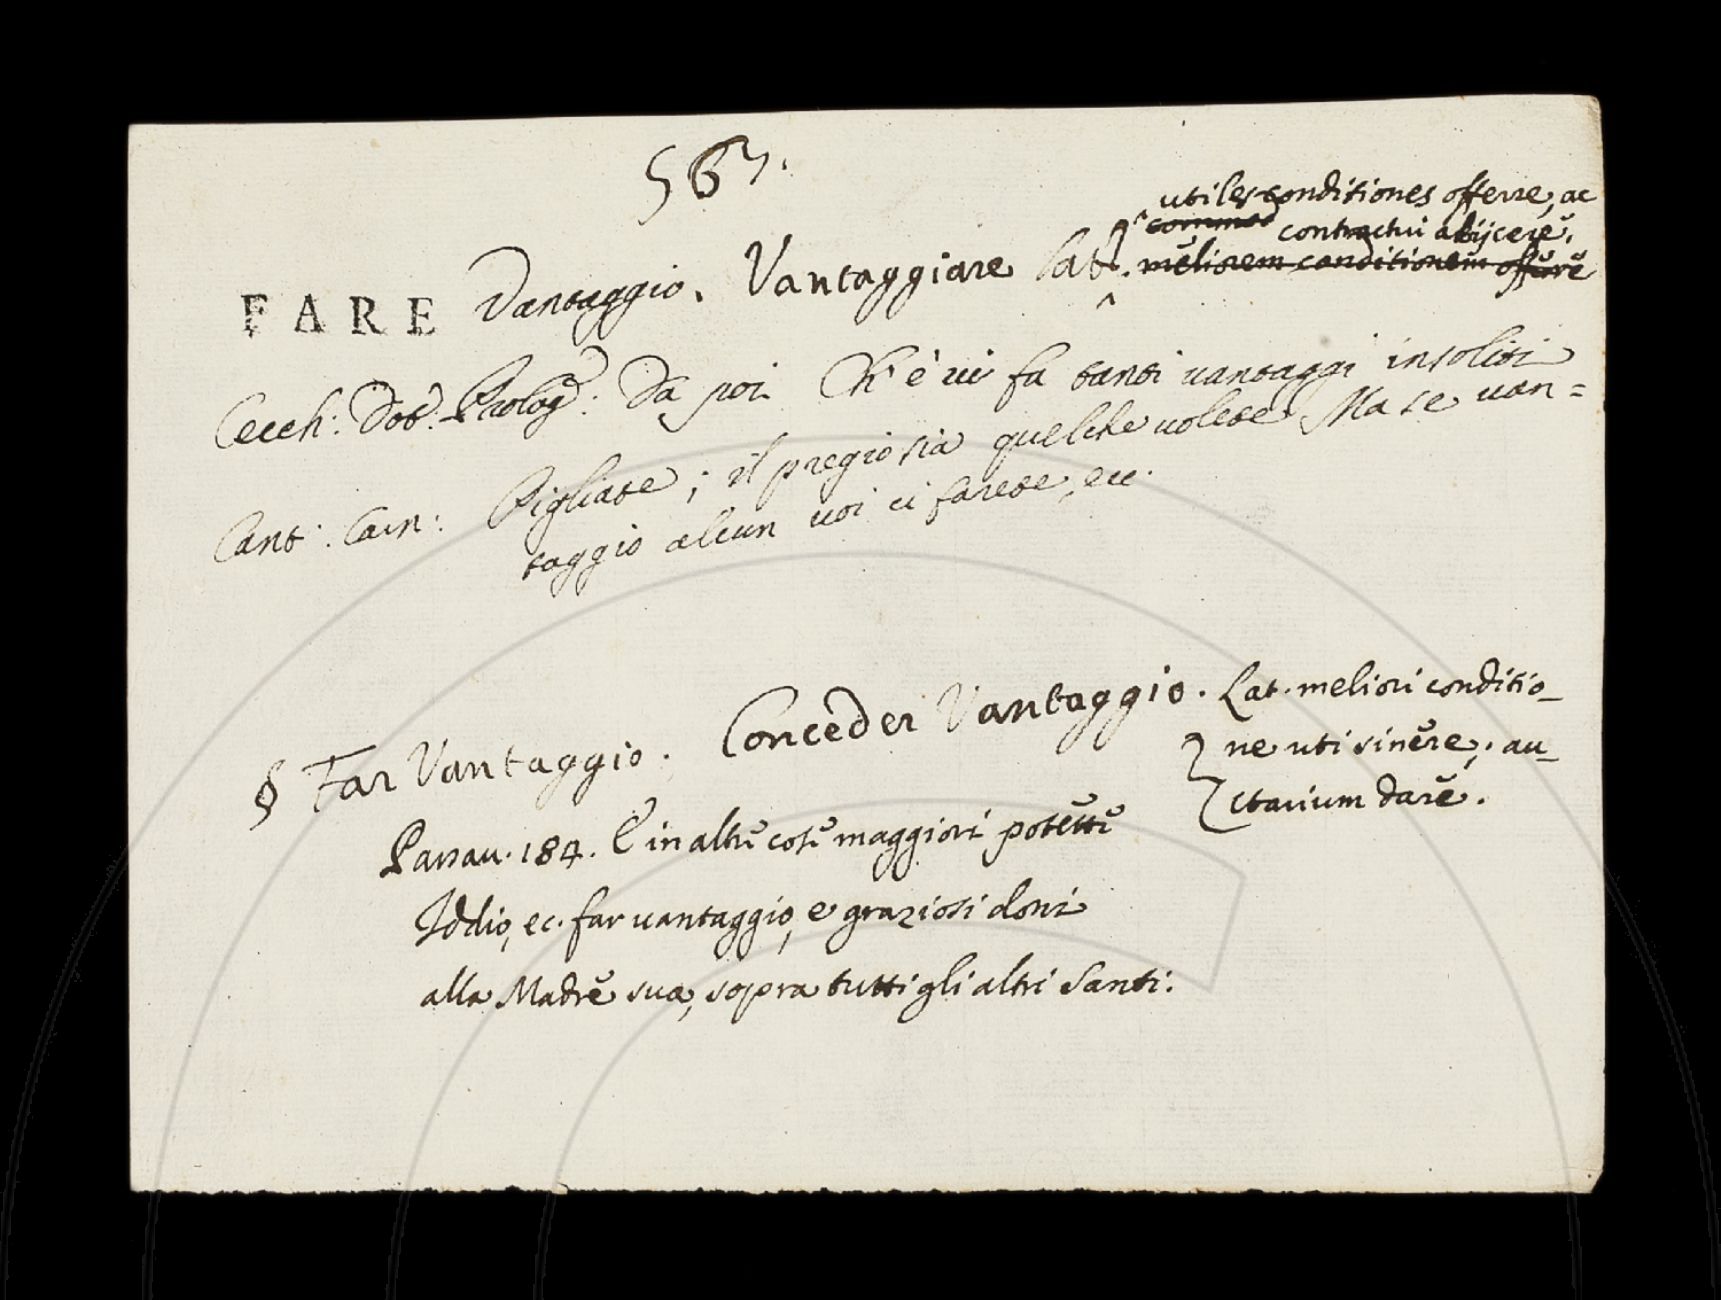 567.
utiles conditiones offerre, ac
commod contractui adijcere.
FARE Vantaggio. Vantaggiare Lat. meliorem conditionem offerre
Cecch: Dot: Prolog: Da poi Ch' è vi fa tanti vantaggi insoliti
Cant: Carn: Pigliate; il pregio sia quelche volete Ma se van=
taggio alcun voi ci farete, ecc.
§ Far Vantaggio. Conceder Vantaggio. Lat. meliori conditio_
ne uti sinere; au_
ctarium dare.
Passav. 184. E in altre cose maggiori potette
Iddio, ec. far vantaggio, e graziosi doni
alla Madre sua, sopra tutti gli altri Santi.